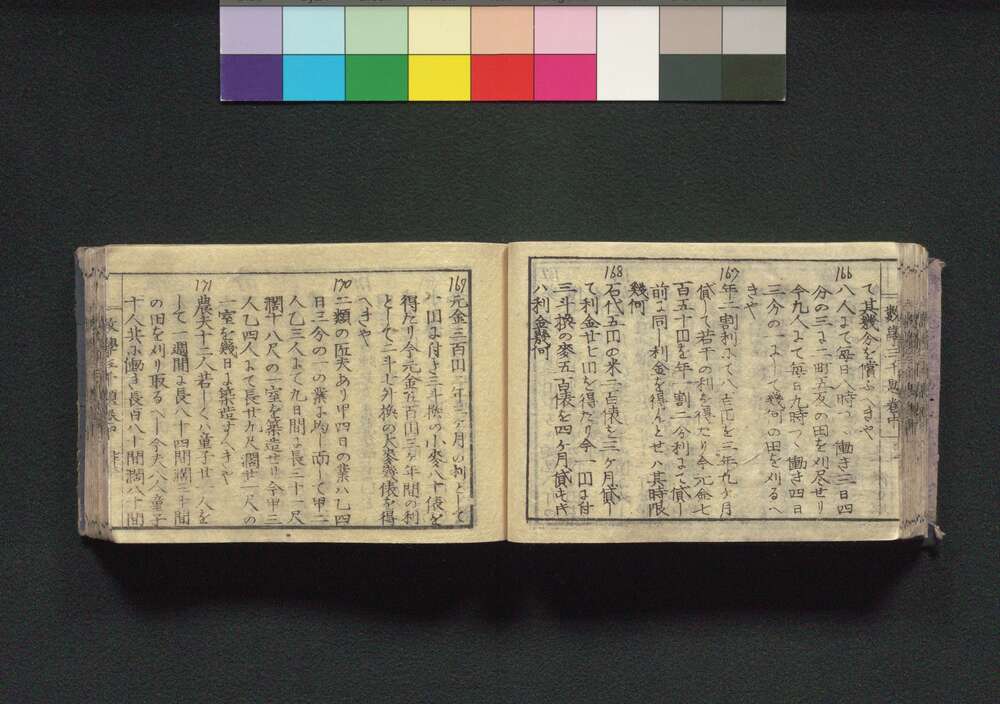 て其幾分を償ふへきや
166
八人よて毎日八時つゝ働き三日四
分の三よ二町五反の田を刈尽せり
今九人よて毎日九時つゝ働き四日
三分の一よして幾何の田を刈るへ
きや
167
年二割利よて八百円を二年九ヶ月
貸して若干の利を得たり今元金七
百五十円を年一割二分利よて貸し
前よ同し利金を得んとせハ其時限
幾何
168
石代五円の米二百俵を三ヶ月貸し
て利金廿七円を得たり今一円よ付
三斗換の麥五百俵を四ヶ月貸セ
ハ利金幾何
169
元金三百円二年三ヶ月の利として
八円よ付き三斗換の小麥八十俵を
得たり今元金五百円三ヶ年間の利
として二斗七升換の大麥幾俵を得
へきや
170
二類の匠夫あり甲四日の業ハ乙四
日三分の一の業よ均し而して甲二
人乙三人よて九日間よ長三十一尺
濶十八尺の一室を築造せり今甲三
人乙四人よて長廿九尺濶廿一尺の
一室を幾日よ築造すへきや
171
農夫十二人若しくハ童子廿一人を
して一週間よ長八十四間濶六十間
の田を刈り取るへし今大人八童子
十人共よ働き長百八十間濶八十間